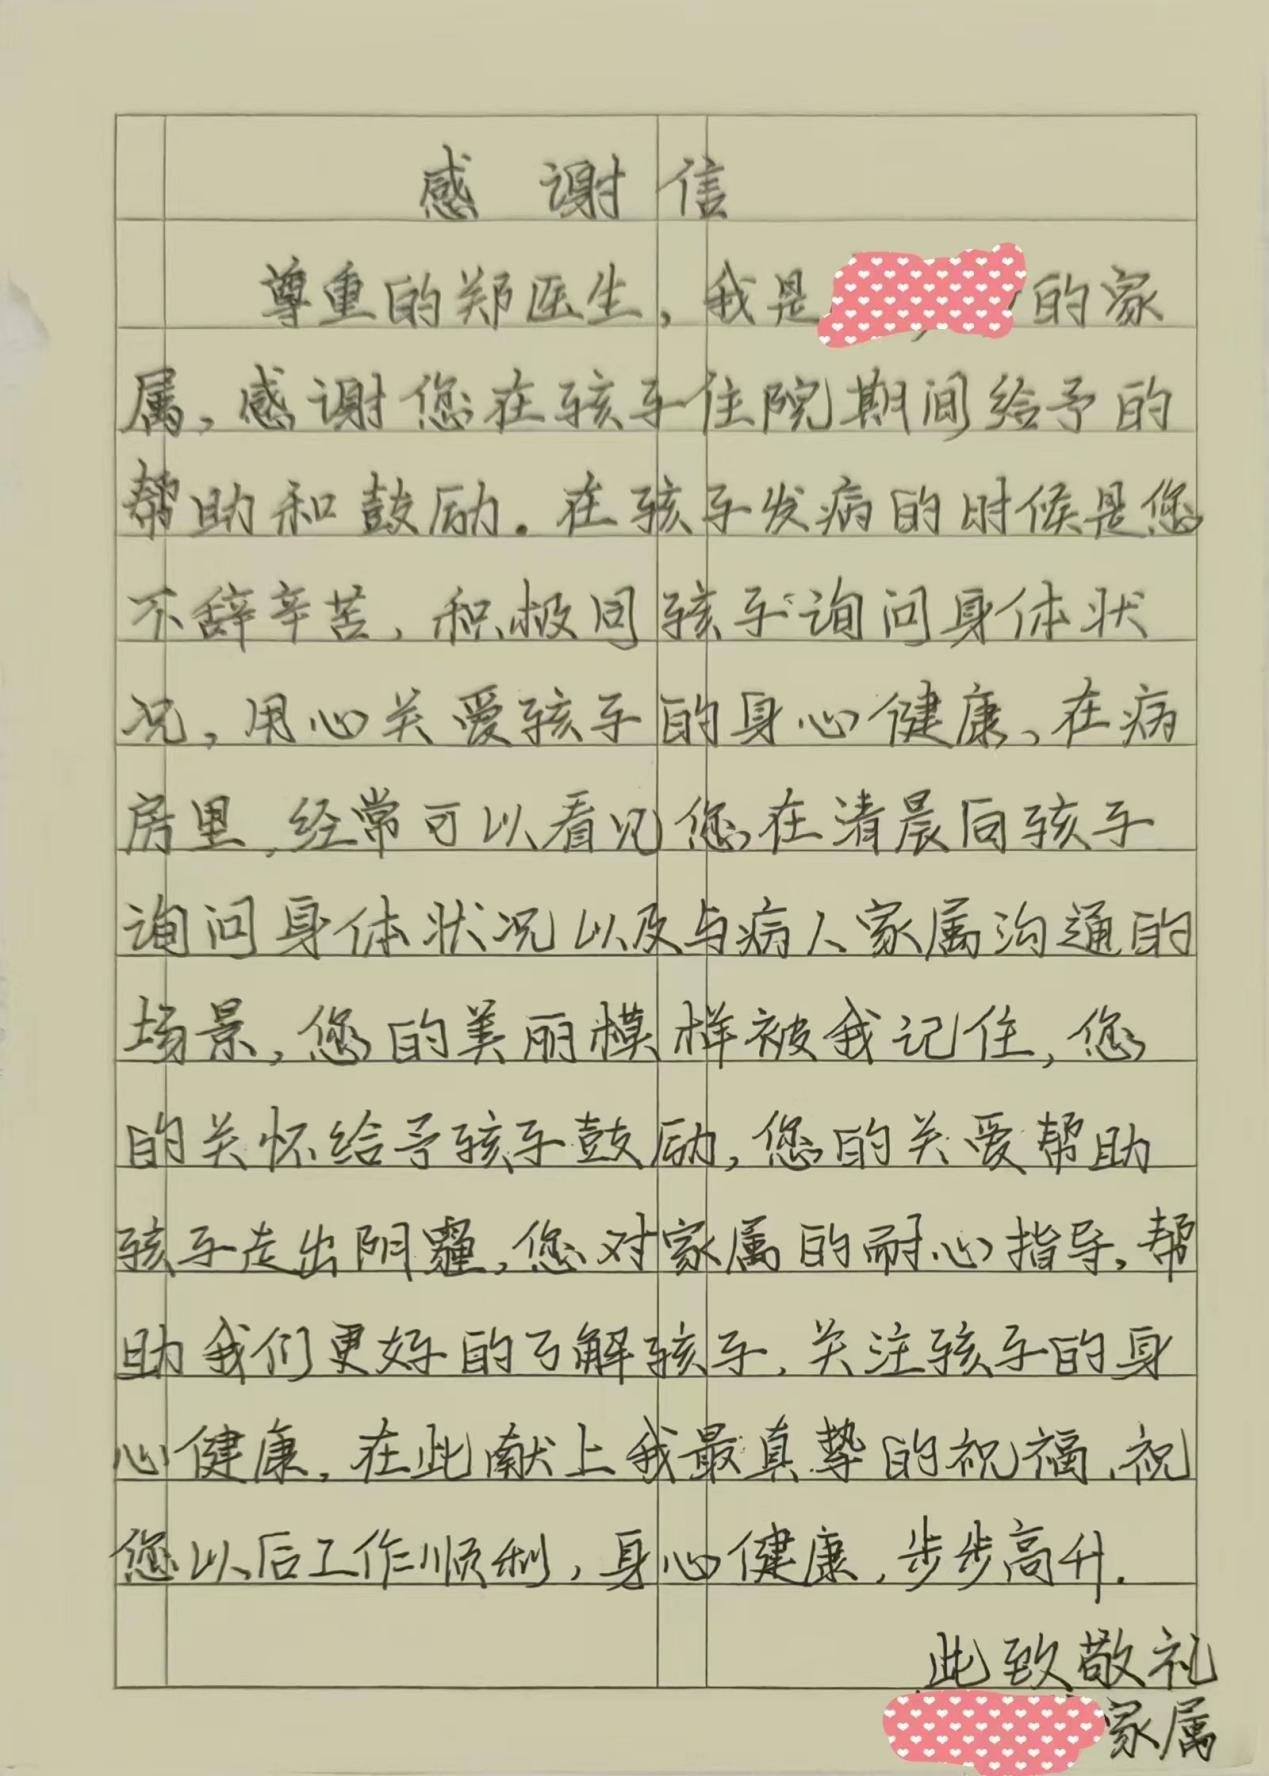 感谢信
尊重的郑医生，我是的家
属，感谢您在孩子住院期间给予的
帮助和鼓励。在孩子发病的时候是您
不辞辛苦，积极同孩子询问身体状
况，用心关爱孩子的身心健康、在病
房里，经常可以看见您在清晨同孩子
询问身体状况以及与病人家属沟通的
场景，您的美丽模样被我记住，您
的关怀给予孩子鼓励，您的关爱帮助
孩子走出阴霾，您对家属的耐心指导，帮
助我们更好的了解孩子，关注孩子的身
心健康，在此献上我最真挚的祝福，祝
您以后工作顺利，身心健康，步步高升.
此致敬礼
家属